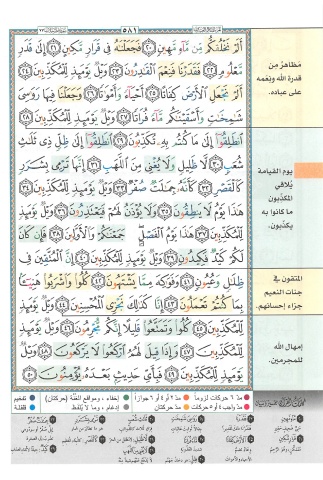 ٥٨١
أَلَمْ نَخْلُقكُّم مِّن مَّآءٍ مَّهِينٍ ٢٠ فَجَعَلْنَٰهُ فِى قَرَارٍ مَّكِينٍ ٢١ إِلَىٰ قَدَرٍ
مَّعْلُومٍ ٢٢ فَقَدَرْنَا فَنِعْمَ ٱلْقَٰدِرُونَ ٢٣ وَيْلٌ يَوْمَئِذٍ لِّلْمُكَذِّبِينَ ٢٤
أَلَمْ نَجْعَلِ ٱلْأَرْضَ كِفَاتًا ٢٥ أَحْيَآءً وَأَمْوَٰتًا ٢٦ وَجَعَلْنَا فِيهَا رَوَٰسِىَ
شَٰمِخَٰتٍ وَأَسْقَيْنَٰكُم مَّآءً فُرَاتًا ٢٧ وَيْلٌ يَوْمَئِذٍ لِّلْمُكَذِّبِينَ ٢٨
ٱنطَلِقُوٓا۟ إِلَىٰ مَا كُنتُم بِهِۦ تُكَذِّبُونَ ٢٩ ٱنطَلِقُوٓا۟ إِلَىٰ ظِلٍّ ذِى ثَلَٰثِ
شُعَبٍ ٣٠ لَّا ظَلِيلٍ وَلَا يُغْنِى مِنَ ٱللَّهَبِ ٣١ إِنَّهَا تَرْمِى بِشَرَرٍ
كَٱلْقَصْرِ ٣٢ كَأَنَّهُۥ جِمَٰلَتٌ صُفْرٌ ٣٣ وَيْلٌ يَوْمَئِذٍ لِّلْمُكَذِّبِينَ ٣٤
هَٰذَا يَوْمُ لَا يَنطِقُونَ ٣٥ وَلَا يُؤْذَنُ لَهُمْ فَيَعْتَذِرُونَ ٣٦ وَيْلٌ يَوْمَئِذٍ
لِّلْمُكَذِّبِينَ ٣٧ هَٰذَا يَوْمُ ٱلْفَصْلِ جَمَعْنَٰكُمْ وَٱلْأَوَّلِينَ ٣٨ فَإِن كَانَ
لَكُمْ كَيْدٌ فَكِيدُونِ ٣٩ وَيْلٌ يَوْمَئِذٍ لِّلْمُكَذِّبِينَ ٤٠ إِنَّ ٱلْمُتَّقِينَ فِى
ظِلَٰلٍ وَعُيُونٍ ٤١ وَفَوَٰكِهَ مِمَّا يَشْتَهُونَ ٤٢ كُلُوا۟ وَٱشْرَبُوا۟ هَنِيٓـًٔۢا
بِمَا كُنتُمْ تَعْمَلُونَ ٤٣ إِنَّا كَذَٰلِكَ نَجْزِى ٱلْمُحْسِنِينَ ٤٤ وَيْلٌ يَوْمَئِذٍ
لِّلْمُكَذِّبِينَ ٤٥ كُلُوا۟ وَتَمَتَّعُوا۟ قَلِيلًا إِنَّكُم مُّجْرِمُونَ ٤٦ وَيْلٌ يَوْمَئِذٍ
لِّلْمُكَذِّبِينَ ٤٧ وَإِذَا قِيلَ لَهُمُ ٱرْكَعُوا۟ لَا يَرْكَعُونَ ٤٨ وَيْلٌ يَوْمَئِذٍ
لِّلْمُكَذِّبِينَ ٤٩ فَبِأَىِّ حَدِيثٍۭ بَعْدَهُۥ يُؤْمِنُونَ ٥٠
مظاهرُ مِن
قدرة الله ونِعَمه
على عباده.
يوم القيامة
يُلاقي
المكذبون
ما كانوا به
يكذّبون.
المتقون في
جنات النعيم
جزاء إحسانهم.
إمهال الله
للمجرمين.
مدّ ٦ حركات لزوماً مدّ ٢ أو ٤ أو ٦ جوازاً إخفاء، ومواقع الغُنَّة (حركتان) تفخيم
مدّ واجب ٤ أو ٥ حركات مدّ حركتان إدغام، وما لا يُلفَظ قلقلة